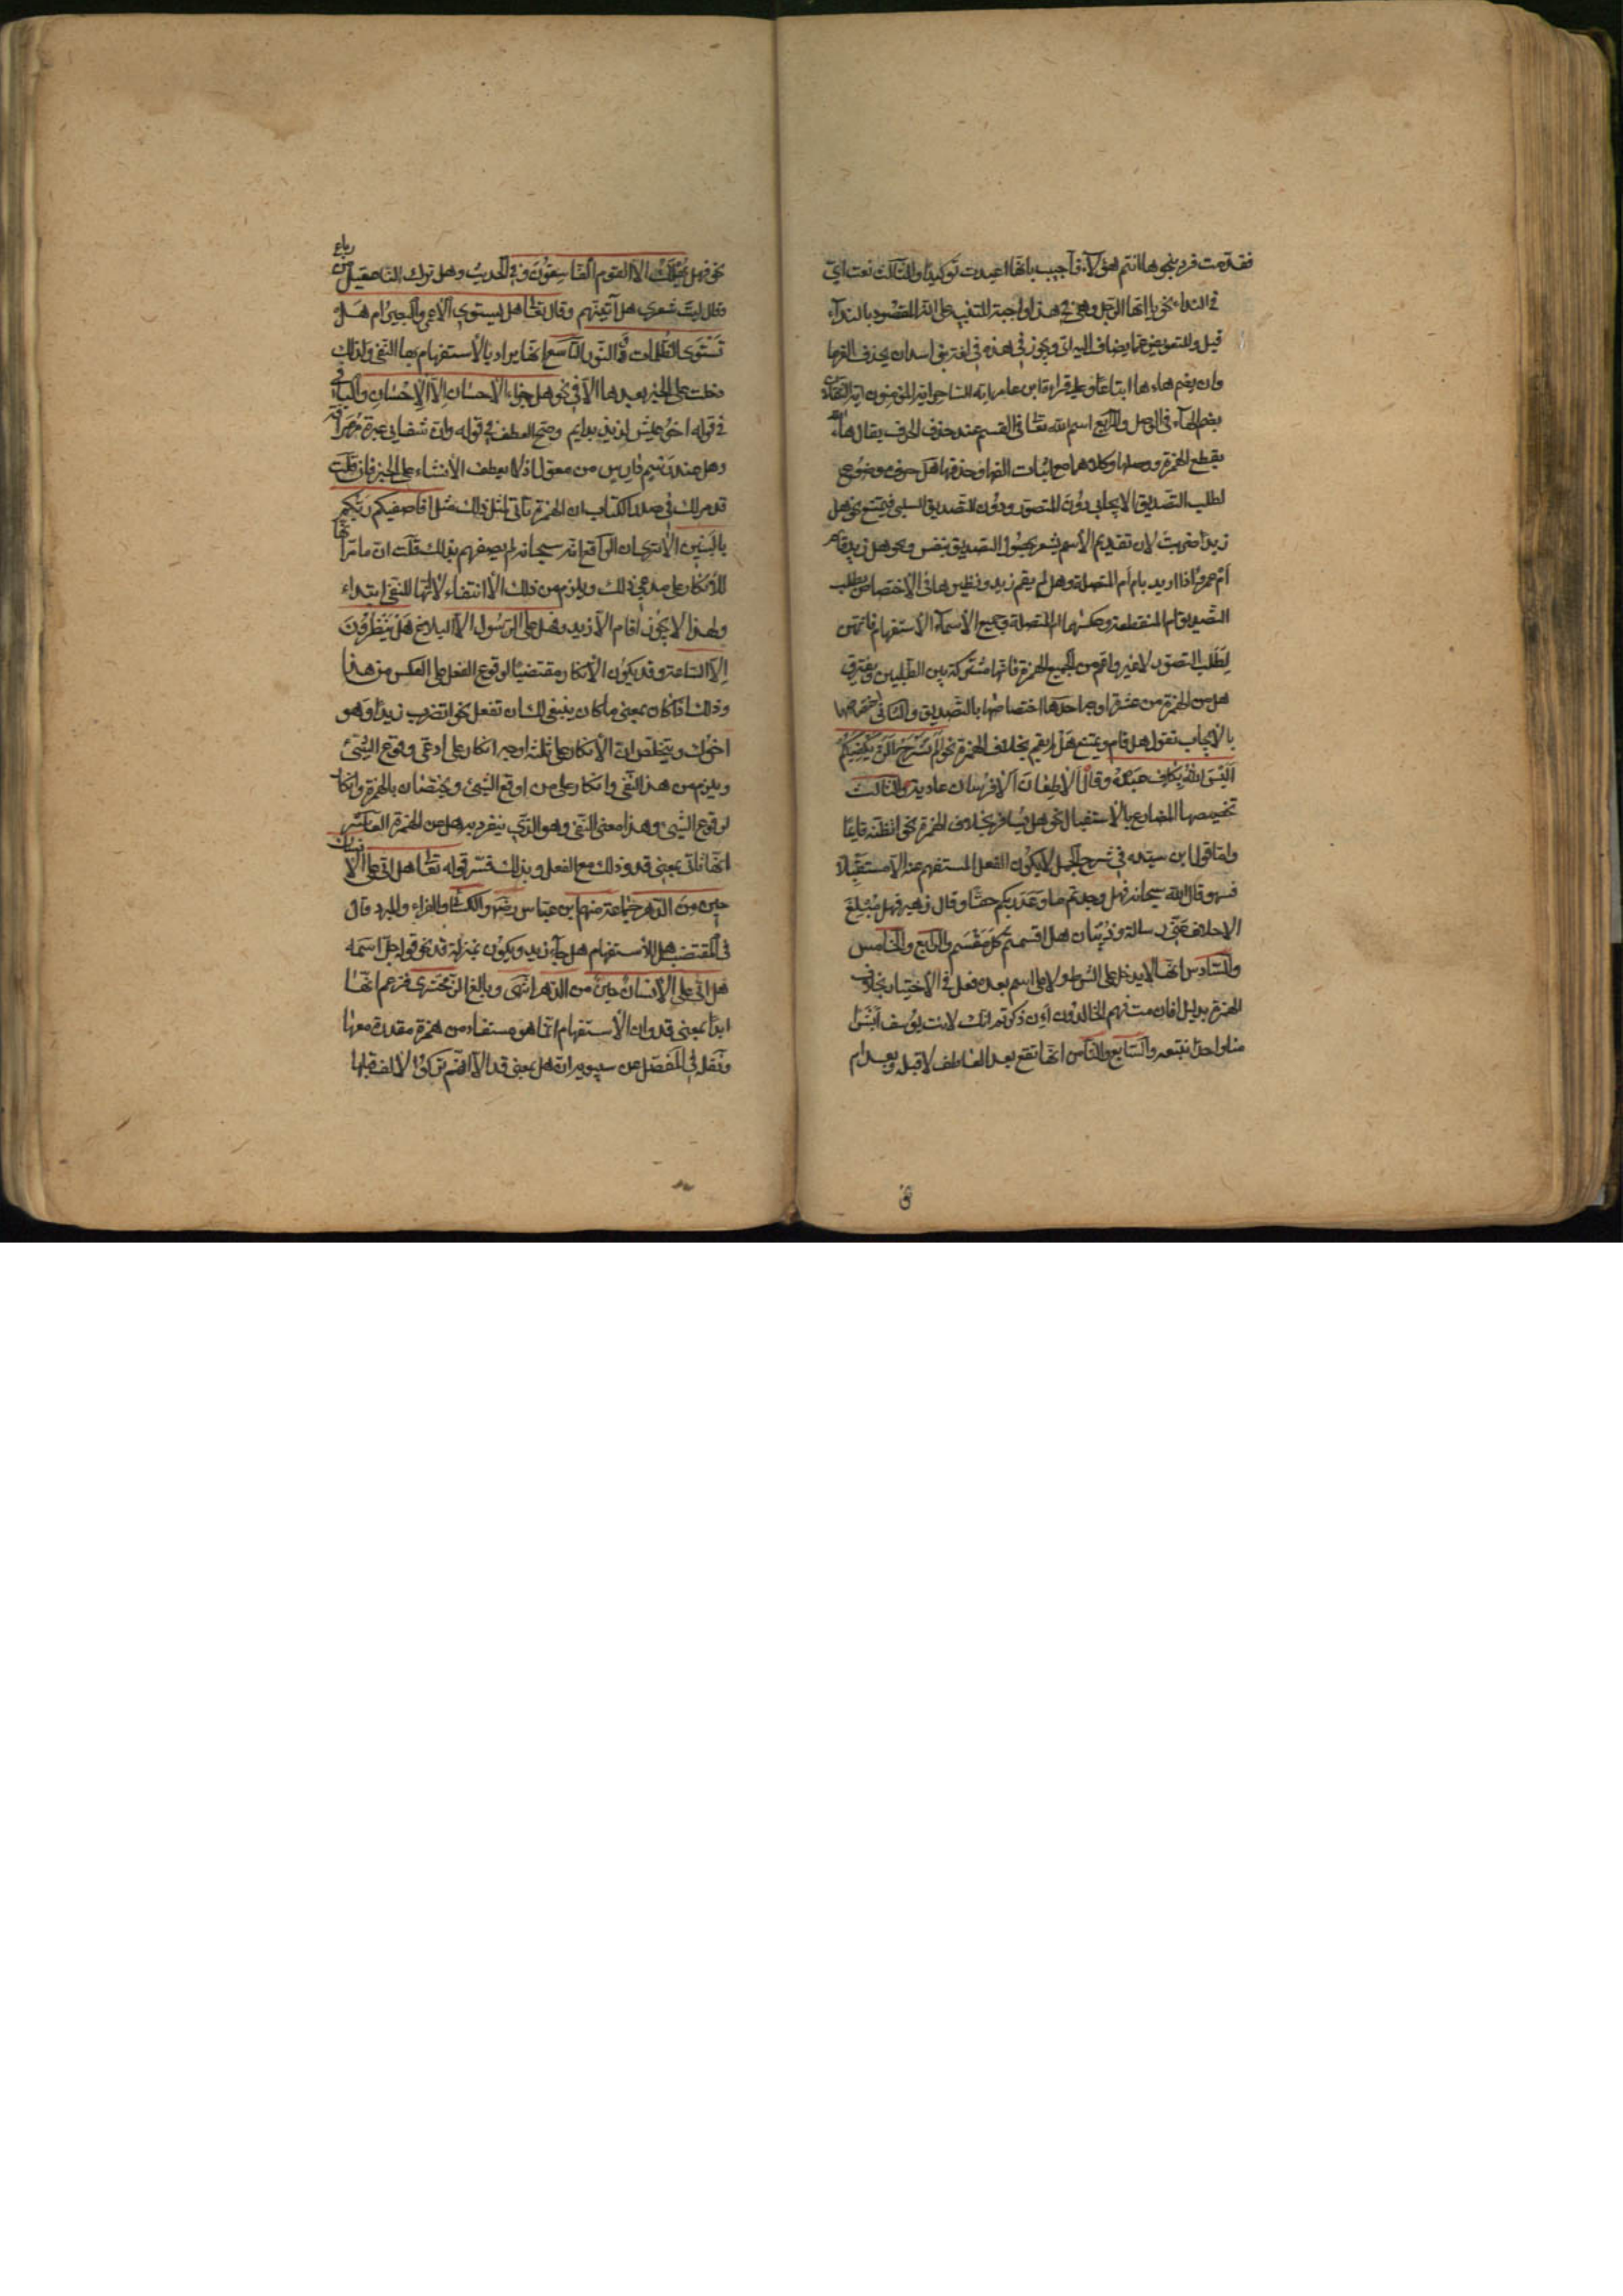 فقدمت فرد بنحو ها انتم هؤلاء فاجيب بانها اعيدت توكيدا والثالث نعت اي
في النداء نحو يا ايها الرجل وهي في هذا واجبة للتنبيه على انه المقصود بالنداء
قيل وللتعويض عما يضاف اليه اي ويجوز في هذه في لغة بني اسد ان يحذف الفها
وان يضم هاءها اتباعا وعليه قراءة ابن عامر ايه الساحر ايه المؤمنون ايه الثقلان
بضم الهاء في الوصل والرابع اسم الله تعالى في القسم عند حذف الحرف يقال ها الله
بقطع الهمزة ووصلها وكلاهما مع اثبات الفها وحذفها هل حرف موضوع
لطلب التصديق الايجابي دون التصور ودون التصديق السلبي فيمتنع نحو هل
زيدا ضربت لان تقديم الاسم يشعر بحصول التصديق بنفس ونحو هل زيد قام
ام عمرو اذا اريد بام ام المتصلة وهل لم يقم زيد ونظيرها في الاختصاص بطلب
التصديق ام المنقطعة وعكسهما ام المتصلة وجميع الاسماء الاستفهام فانهن
لطلب التصور لا غير واعم من الجميع الهمزة فانها مشتركة بين الطلبين ويفترق
هل من الهمزة من عشرة اوجه احدها اختصاصها بالتصديق والثاني اختصاصها
بالايجاب تقول هل قام ويمتنع هل لم يقم بخلاف الهمزة نحو الم نشرح الن يكفيكم
اليس الله بكاف عبده وقال الا طعان الا فرسان عادية والثالث
تخصيصها المضارع بالاستقبال نحو هل تسافر بخلاف الهمزة نحو اتظنه قائما
واما قول ابن سيده في شرح الجمل لا يكون الفعل المستفهم عنه الا مستقبلا
فسهو قال الله سبحانه فهل وجدتم ما وعد ربكم حقا وقال زهير فهل مبلغ
الاحلاف عني رسالة وذبيان هل اقسمتم كل مقسم والرابع والخامس
والسادس انها لا يدخل على الشرط ولا على اسم بعده فعل في الاختيار بخلاف
الهمزة بدليل افان مت فهم الخالدون ائن ذكرتم ائنك لانت يوسف ابشرا
منا واحدا نتبعه والسابع والثامن انها تقع بعد العاطف لا قبله وبعد ام
نحو فهل يهلك الا القوم الفاسقون وفي الحديث وهل ترك لنا عقيل من رباع
وقال ليت شعري هل آتينهم وقال تعالى هل يستوي الاعمى والبصير ام هل
تستوي الظلمات والنور التاسع انها يراد بالاستفهام بها النفي ولذلك
دخلت على الخبر بعدها الا في نحو هل جزاء الاحسان الا الاحسان والباء في
في قوله اخو عيش لذيذ بدايم وصح العطف في قوله وان شفائي عبرة مهراقة
وهل عند رسم دارس من معول اذ لا يعطف الانشاء على الخبر فان قلت
قد مر لك في صدر الكتاب ان الهمزة تاتي لمثل ذلك مثل افاصفيكم ربكم
بالبنين الا ترى ان الواقع انه سبحانه لم يصفهم بذلك قلت ان ما مر انها
للانكار على مدعي ذلك ويلزم من ذلك الانتفاء لا انها للنفي ابتداء
ولهذا لا يجوز اقام الا زيد وهل على الرسول الا البلاغ هل ينظرون
الا الساعة وقد يكون الانكار مقتضيا لوقوع الفعل على العكس من هذا
وذلك اذا كان بمعنى ما كان ينبغي لك ان تفعل نحو اتضرب زيدا وهو
اخوك ويتخلص ان الانكار على ثلثة اوجه انكار على ادعى وقوع الشيء
ويلزم من هذا النفي وانكار على من اوقع الشيء ويختصان بالهمزة وانكار
لوقوع الشيء وهذا معنى النفي وهو الذي ينفرد به هل عن الهمزة العاشر
انها تاتي بمعنى قد وذلك مع الفعل وبذلك فسر قوله تعالى هل اتى على الانسان
حين من الدهر جماعة منهم ابن عباس رضه والكسائي والفراء والمبرد وقال
في المقتضب هل للاستفهام هل جاء زيد ويكون بمنزلة قد نحو قوله جل اسمه
هل اتى على الانسان حين من الدهر انتهى وبالغ الزمخشري فزعم انها
ابدا بمعنى قد وان الاستفهام انما هو مستفاد من همزة مقدرة معها
ونقله في المفصل عن سيبويه ان هل بمعنى قد الا انهم تركوا الالف قبلها